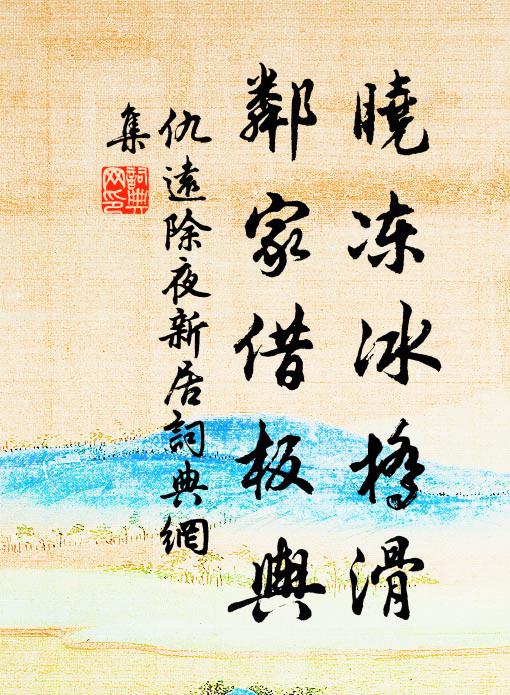 曉凍冰橋滑
鄰家借板輿
仇遠除夜新居詞典網
集
詞典網印